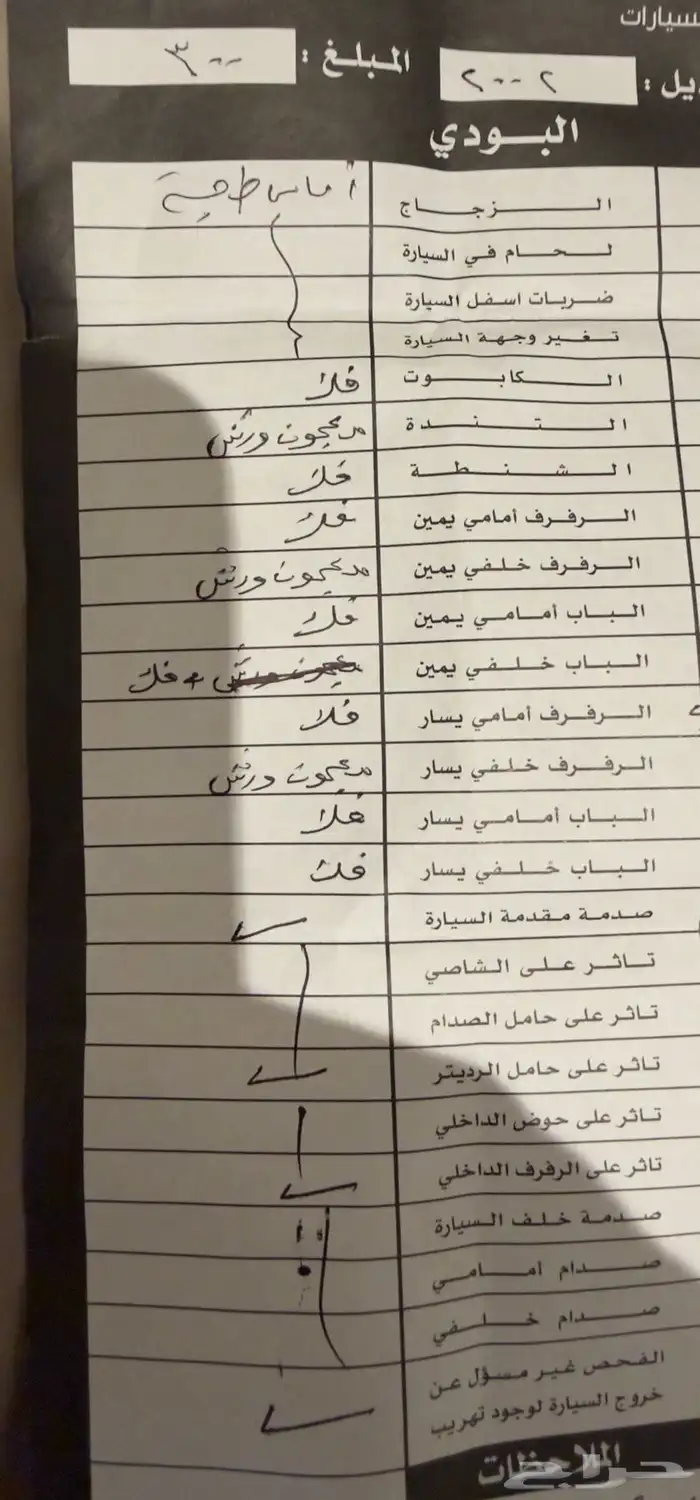 سيارات
ديل : ٢٠٠٢ المبلغ : ٣٠٠
البودي
الزجاج
لحام في السيارة
ضربات اسفل السيارة
تغير وجهة السيارة
الكابوت فك
التندة معجون ورش
الشنطة فك
الرفرف أمامي يمين فك
الرفرف خلفي يمين معجون ورش
الباب أمامي يمين فك
الباب خلفي يمين فك
الرفرف أمامي يسار فك
الرفرف خلفي يسار معجون ورش
الباب أمامي يسار فك
الباب خلفي يسار فك
صدمة مقدمة السيارة
تاثر على الشاصي
تاثر على حامل الصدام
تاثر على حامل الرديتر
تاثر على حوض الداخلي
تاثر على الرفرف الداخلي
صدمة خلف السيارة
صدام أمامي
صدام خلفي
الفحص غير مسؤل عن
خروج السيارة لوجود تهريب
الملاحظات
حراج